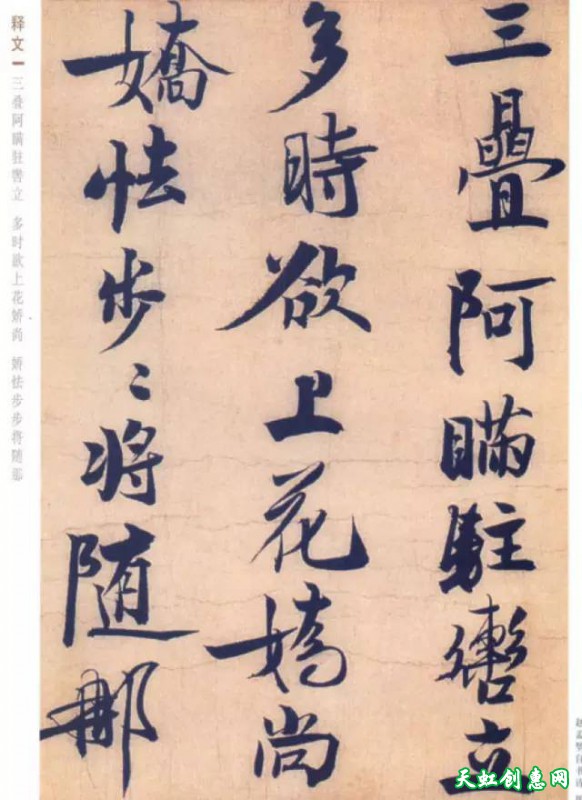 三疊阿瞞駐轡立
多時欲上花嬌尚
嬌怯步〻将随那
释文
三叠阿瞒驻辔立 多时欲上花娇尚 娇怯步步将随那
赵孟坚自书诗
天虹创惠网